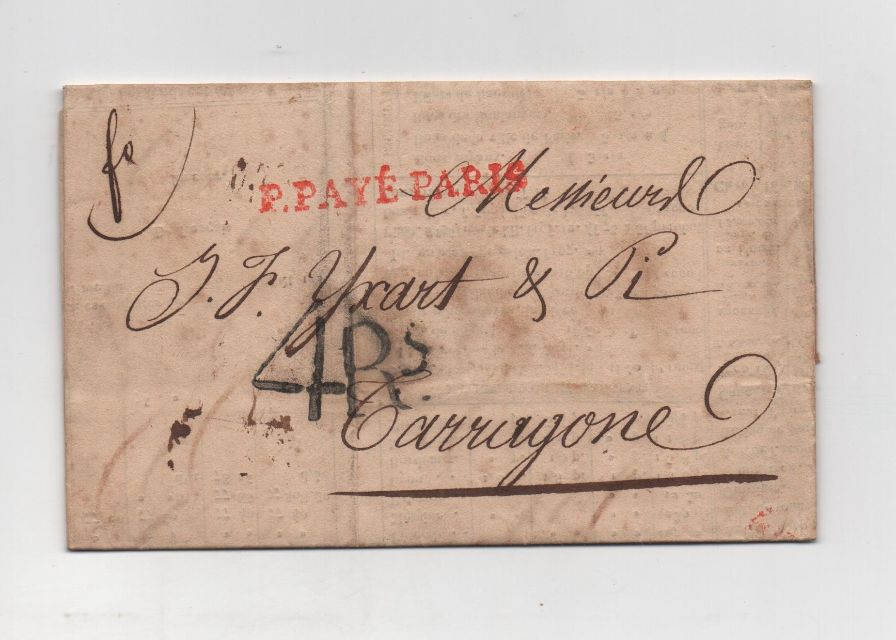 fo
P.PAYÉ PARIS
Messieurs
J. F. Yxart & Pi
4Rs.
Tarragone